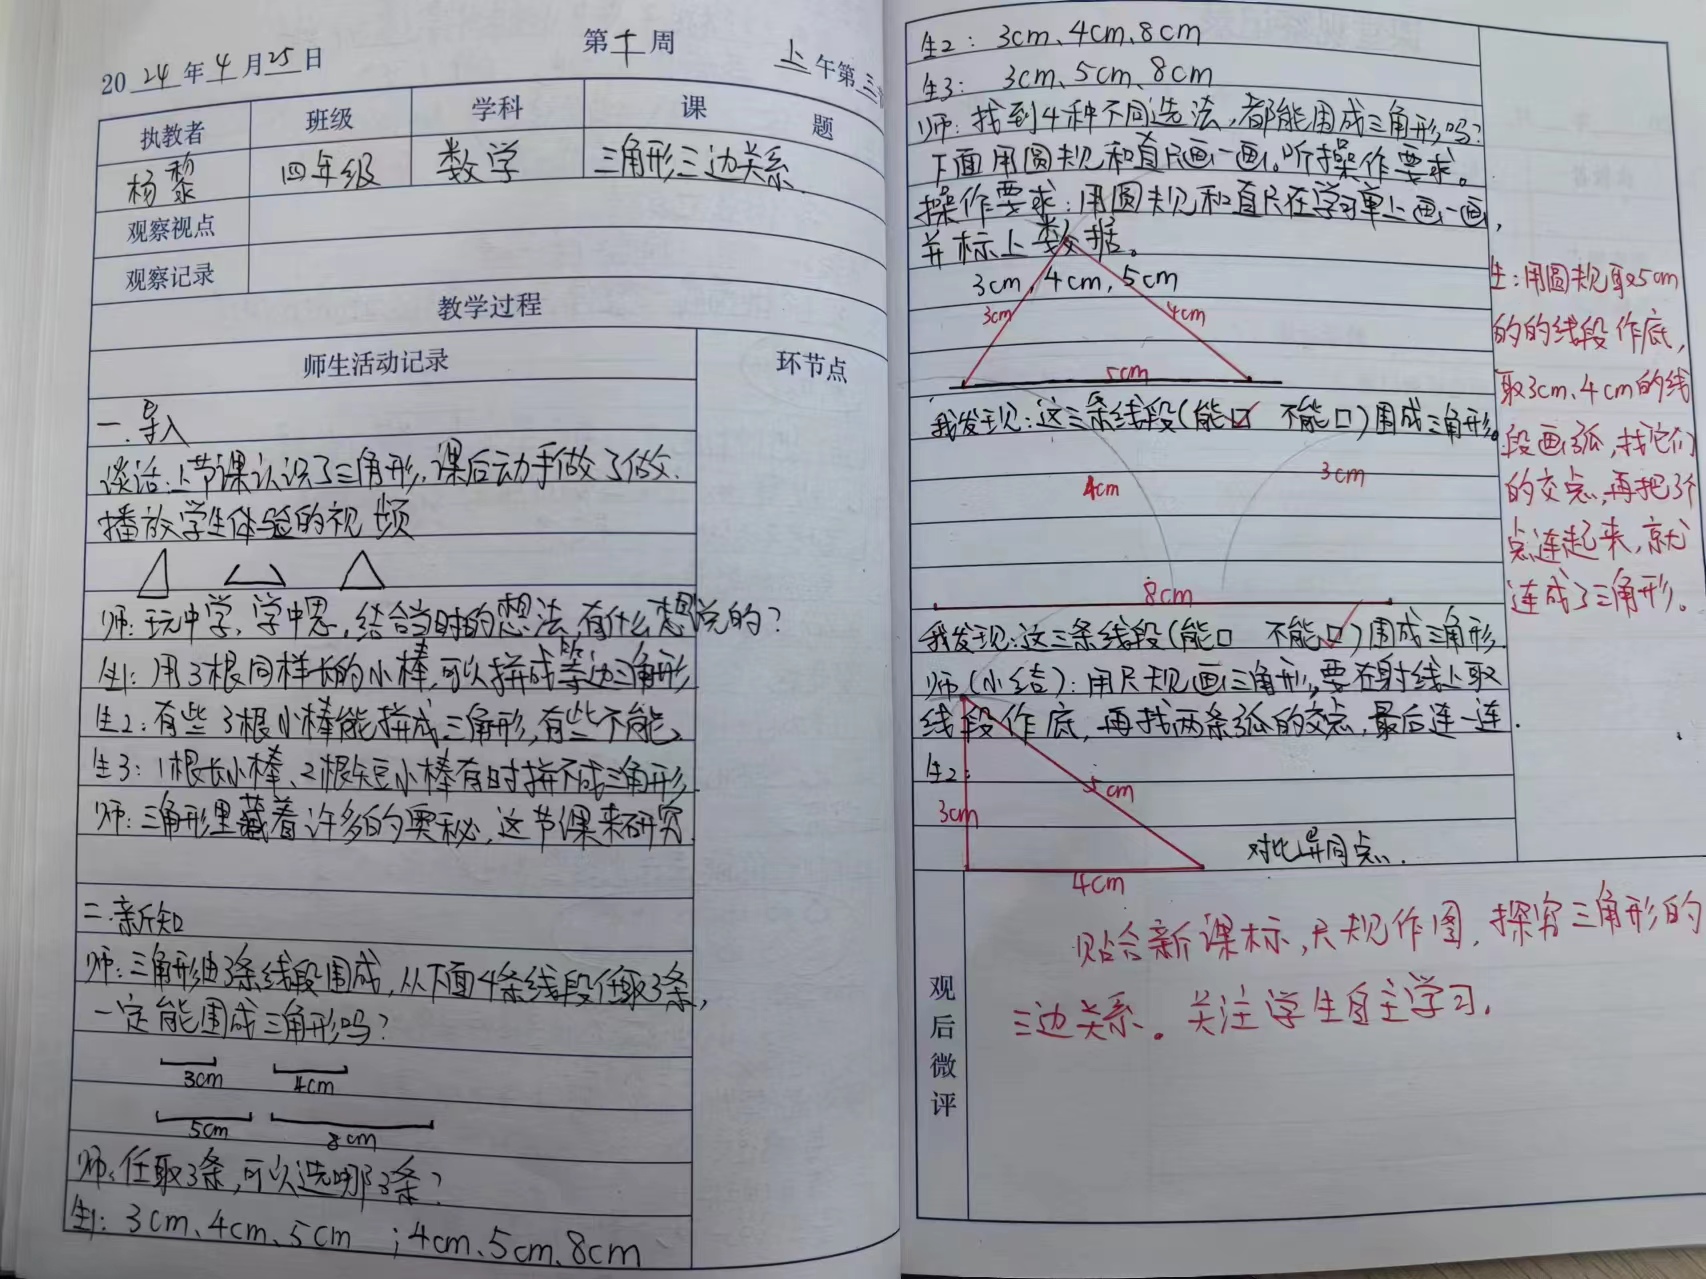 2024年4月25日
第十周
上午第三节
执教者 班级 学科 课题
杨黎 四年级 数学 三角形三边关系
观察视点
观察记录
教学过程
师生活动记录 环节点
一.导入
谈话:上节课认识了三角形,课后动手做了做.
播放学生体验的视频
师:玩中学,学中思,结合当时的想法,有什么想说的?
生1:用3根同样长的小棒,可以拼成等边三角形
生2:有些3根小棒能拼成三角形,有些不能。
生3:1根长小棒、2根短小棒有时拼不成三角形
师:三角形里藏着许多的奥秘,这节课来研究.
二.新知
师:三角形由3条线段围成,从下面4条线段任取3条,
一定能围成三角形吗?
3cm 4cm
5cm 8cm
师:任取3条,可以选哪3条?
生1:3cm、4cm、5cm ;4cm、5cm、8cm
生2:3cm、4cm、8cm
生3: 3cm、5cm、8cm
师:找到4种不同选法,都能围成三角形吗?
下面用圆规和直尺画一画。听操作要求。
操作要求:用圆规和直尺在学习单上画一画,
并标上数据。
3cm,4cm,5cm
3cm 4cm
5cm
我发现:这三条线段(能☑ 不能□)围成三角形。
4cm 3cm
8cm
我发现:这三条线段(能□ 不能☑)围成三角形.
师(小结):用尺规画三角形,要在射线上取
线段作底,再找两条弧的交点,最后连一连.
生2:
3cm 5cm
4cm
对比异同点.
生:用圆规取5cm
的的线段作底,
取3cm、4cm的线
段画弧,找它们
的交点,再把3个
点连起来,就
连成了三角形。
观后微评
贴合新课标,尺规作图,探究三角形的
三边关系。关注学生自主学习.